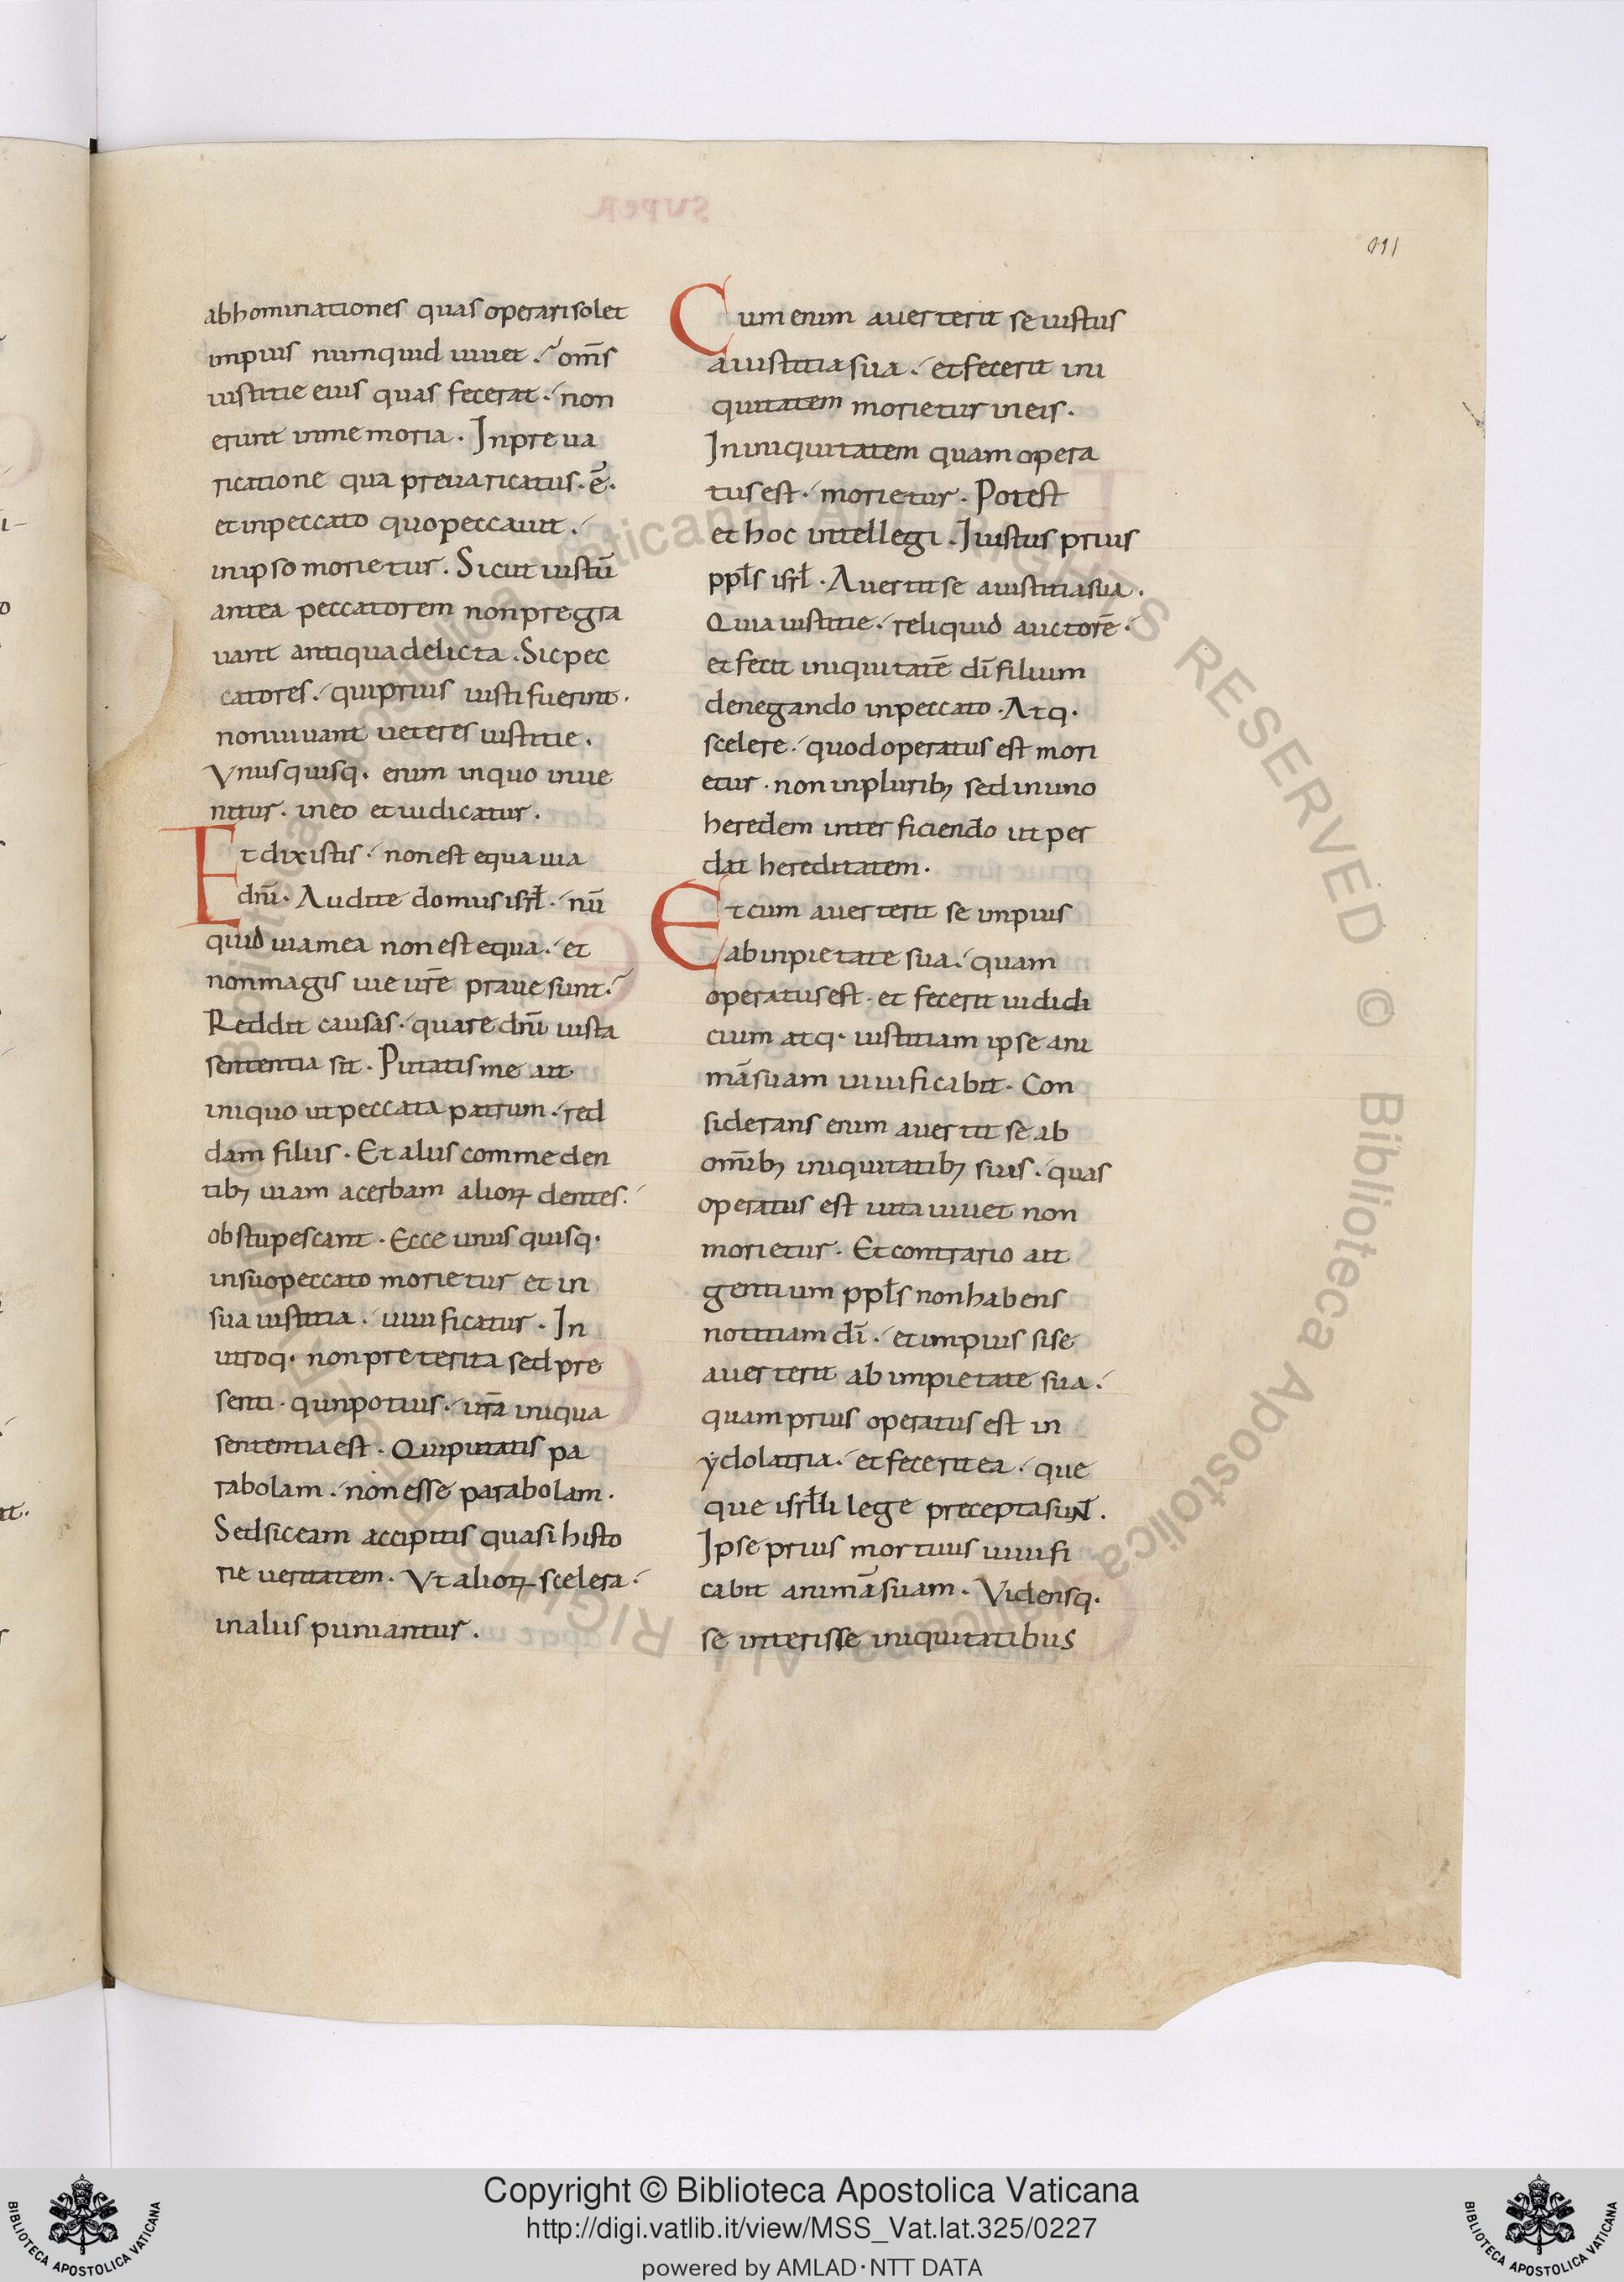 abhominationes quas operari solet
impius numquid uiuet . om̄s
iustitie eius quas fecerat . non
erunt in memoria . In preua
ricatione qua preuaricatus . ē .
et in peccato quo peccauit .
in ipso morietur . Sicut iustū
antea peccatorem non pregra
uant antiqua delicta . Sic pec
catores . qui prius iusti fuerint .
non iuuant ueteres iustitie .
Vnusquisq . enim in quo inue
nitur . in eo et iudicatur .
Et dixistis . non est equa uia
dn̄i . Audite domus isrł . nū
quid uia mea non est equa . et
non magis uie ur̄e praue sunt .
Reddit causas . quare dn̄i iusta
sententia sit . Putatis me ait
iniquo ut peccata patrum . red
dam filiis . Et aliis commeden
tibꝫ uiam acerbam alioꝝ dentes .
obstupescant . Ecce unus quisq .
in suo peccato morietur et in
sua iustitia . uiuificatur . In
utroq . non preterita sed pre
senti . quin potius . ur̄a iniqua
sententia est . Qui putatis pa
rabolam . non esse parabolam .
Sed sic eam accipitis quasi histo
rie ueritatem . Vt alioꝝ scelera .
in aliis puniantur .
Cum enim auerterit se iustus
a iustitia sua . et fecerit ini
quitatem morietur in eis .
In iniquitatem quam opera
tus est . morietur . Potest
et hoc intellegi . Iustus prius
ppłs isrł . Auertit se a iustitia sua .
Quia iustitie . reliquid auctorē .
et fecit iniquitatē dī filium
denegando in peccato . Atq .
scelere . quod operatus est mori
etur . non in pluribꝫ sed in uno
heredem interficiendo ut per
dat hereditatem .
Et cum auerterit se impius
ab inpietate sua . quam
operatus est . et fecerit iudidi
cium atq . iustitiam ipse ani
mā suam uiuificabit . Con
siderans enim auertit se ab
om̄ibꝫ iniquitatibꝫ suis . quas
operatus est uita uiuet non
morietur . Et contrario ait
gentium ppłs non habens
notitiam dī . et impius si se
auerterit ab impietate sua .
quam prius operatus est in
ydolatria . et fecerit ea . que
que isrłli lege precepta sunt .
Ipse prius mortuus uiuifi
cabit animā suam . Vidensq .
se interisse iniquitatibus
Copyright © Biblioteca Apostolica Vaticana
http://digi.vatlib.it/view/MSS_Vat.lat.325/0227
powered by AMLAD·NTT DATA
BIBLIOTECA APOSTOLICA VATICANA
BIBLIOTECA APOSTOLICA VATICANA